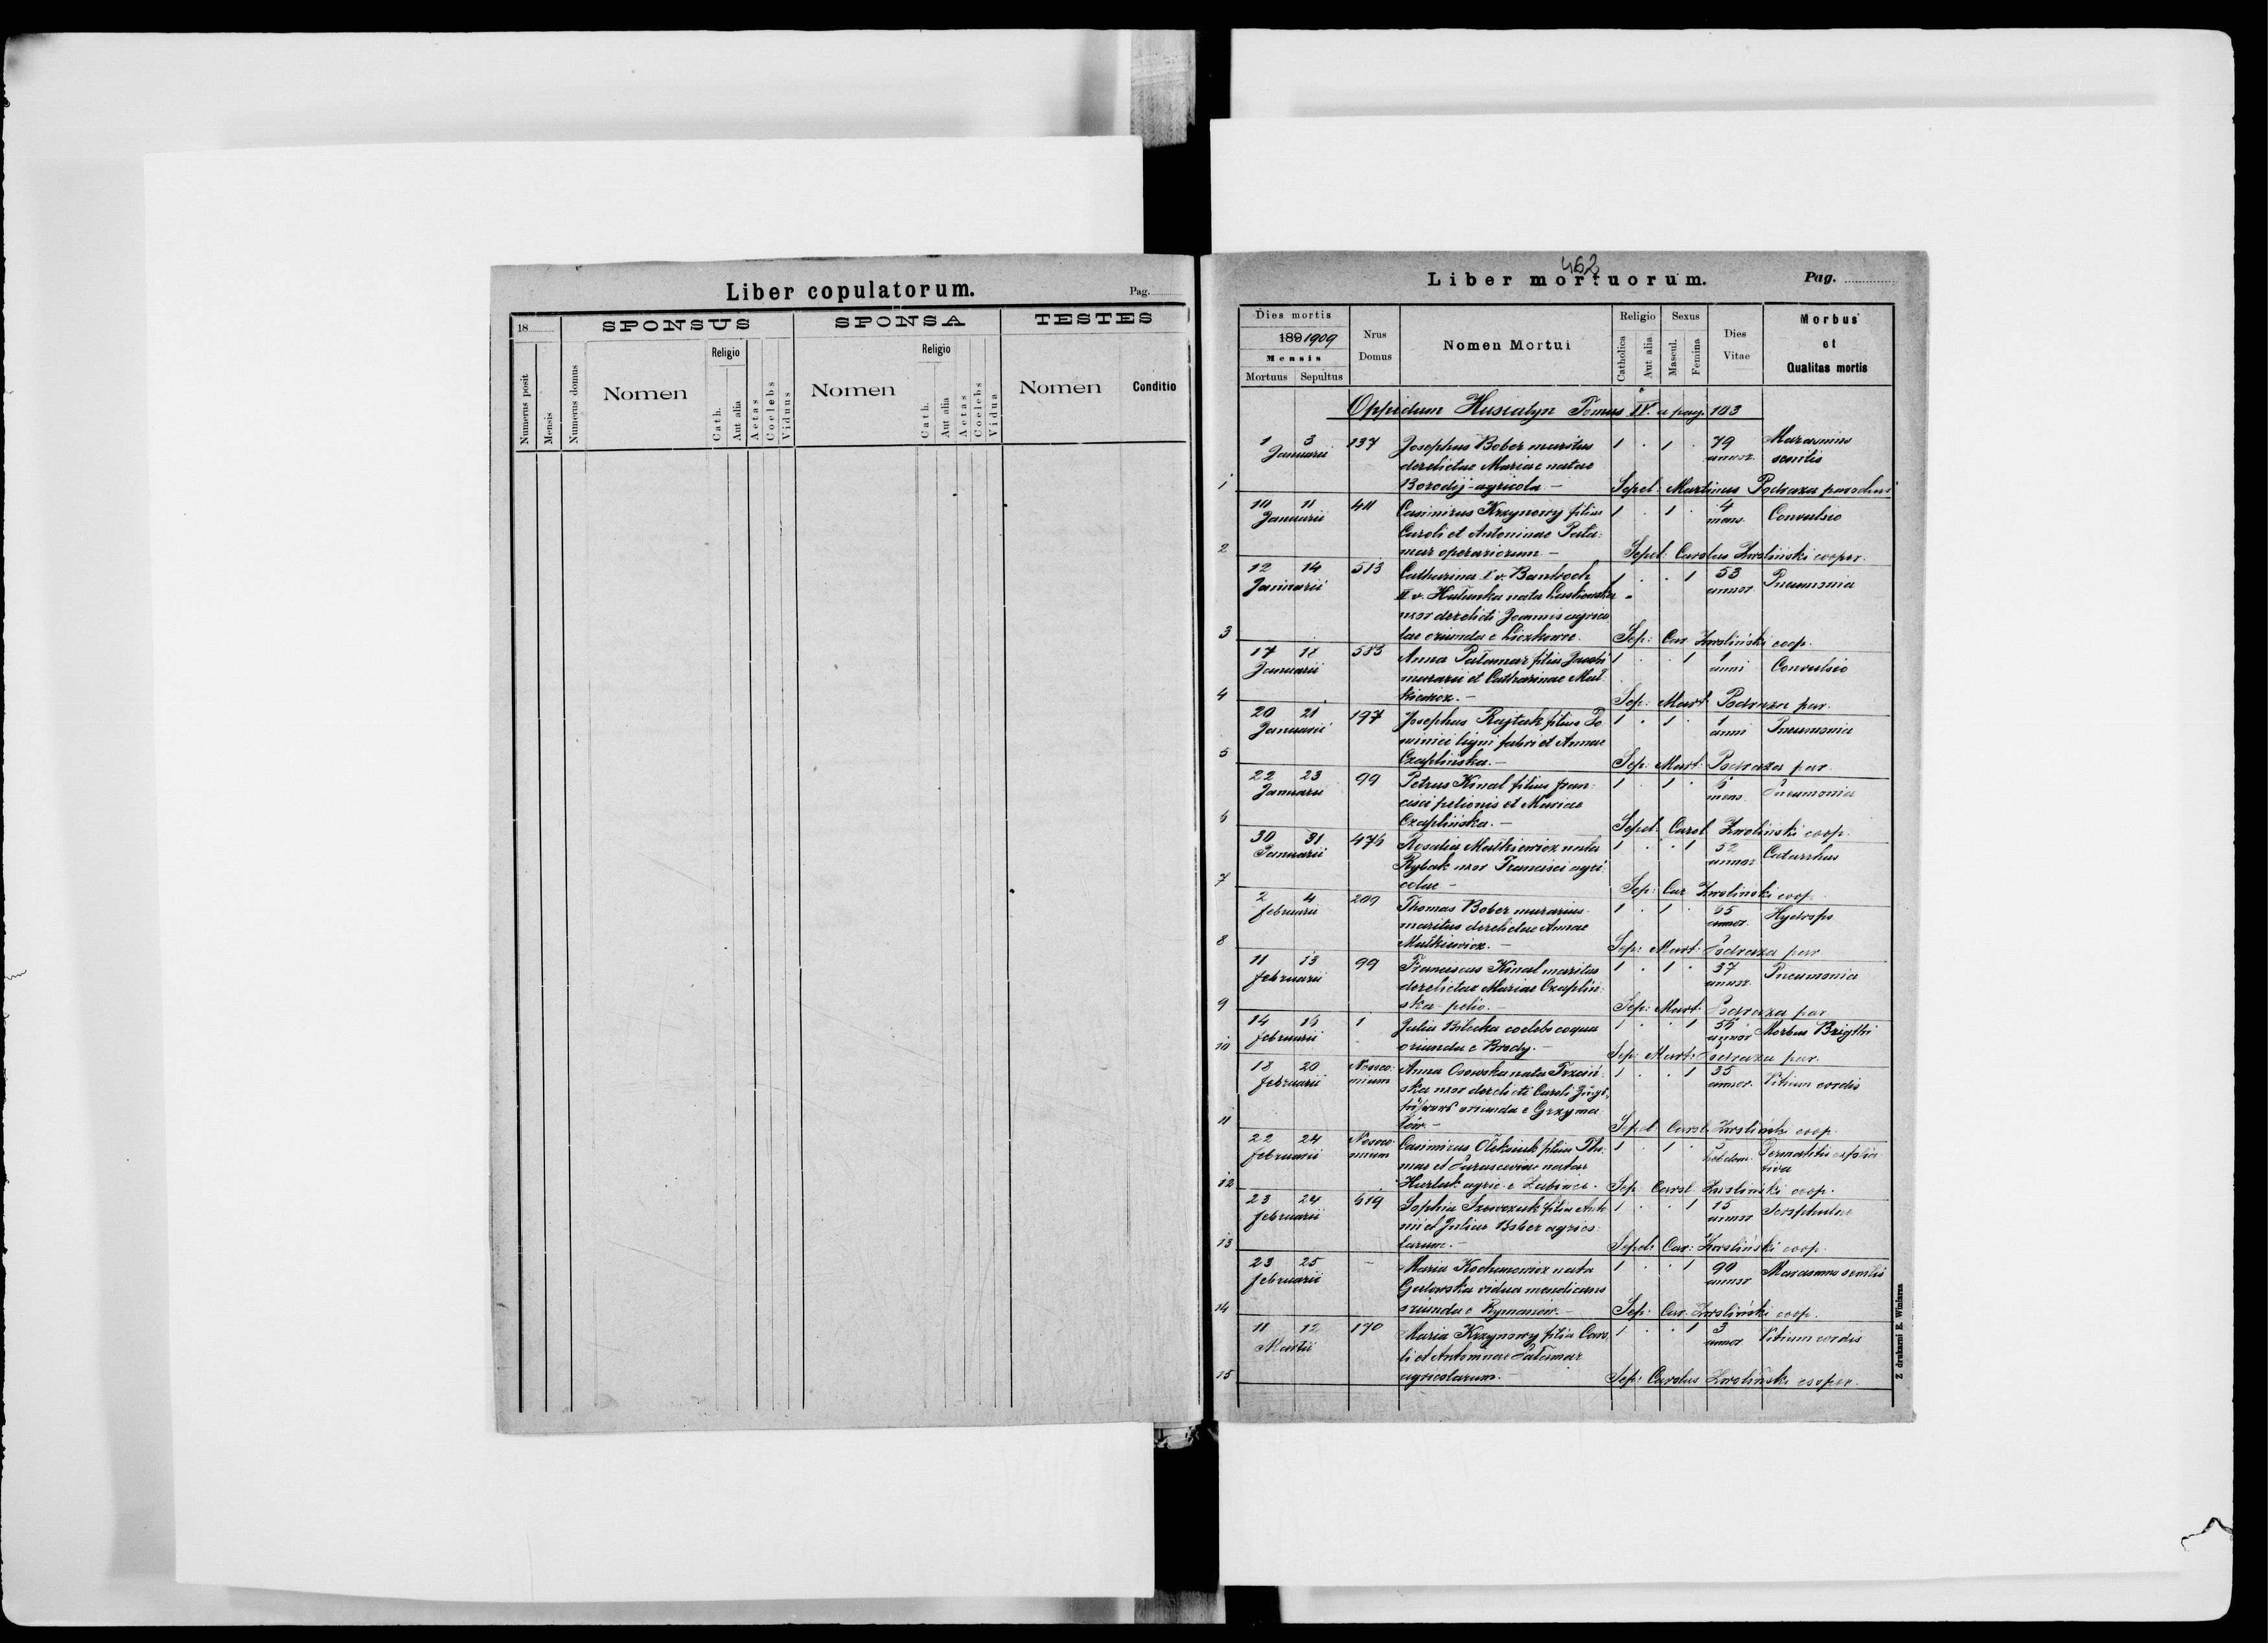 Liber copulatorum.
Pag.
18
SPONSUS
SPONSA
TESTES
Numerus posit
Mensis
Numerus domus
Nomen
Religio
Cath.
Aut alia
Aetas
Coelebs
Viduus
Nomen
Religio
Cath.
Aut alia
Aetas
Coelebs
Vidua
Nomen
Conditio
462
Liber mortuorum.
Pag.
Dies mortis
189 1909
Mensis
Mortuus
Sepultus
Nrus
Domus
Nomen Mortui
Religio
Catholica
Aut alia
Sexus
Mascul.
Femina
Dies
Vitae
Morbus
et
Qualitas mortis
Oppidum Husiatyn Tomus IV. a pag. 103
1 3 137 Josephus Bober maritus 1 . 1 . 79 Marasmus
Januarii derelictae Mariae natae annor. senilis
1 Borodij - agricola - Sepel: Martinus Podraza parochus
10 11 411 Casimirus Krzynowy filius 1 . 1 . 4 Convulsio
Januarii Caroli et Antoninae Pała- mens.
2 mar operariorum - Sepel: Carolus Zwoliński cooper.
12 14 513 Catharina I v. Bantroch 1 . . 1 53 Pneumonia
Januarii II v. Hałunka nata annor.
uxor derelicti Joannis agrico
3 lae oriunda e Liczkowce. Sep: Car. Zwoliński coop.
17 18 583 Anna Pałamar filia Jacobi 1 . . 1 1 Convulsio
Januarii murarii et Catharinae Mał anni
4 kiewicz. - Sep: Mart. Podraza par.
20 21 197 Josephus Rajtak filius Do 1 . 1 . 1 Pneumonia
Januarii minici ligni fabri et Annae anni
5 Czaplińska. - Sep: Mart. Podraza par.
22 23 99 Petrus Kinal filius Fran- 1 . 1 . 6 Pneumonia
Januarii cisci pelionis et Mariae mens.
6 Czaplińska. - Sepel: Carol Zwoliński coop.
30 31 476 Rosalia Małkiewicz nata 1 . . 1 52 Catarrhus
Januarii Rybak uxor Francisci agri annor
7 colae - Sep: Car. Zwoliński coop.
2 4 209 Thomas Bober murarius 1 . 1 . 65 Hydrops
februarii maritus derelictae Annae annor.
8 Małkiewicz. - Sep: Mart: Podraza par.
11 13 99 Franciscus Kinal maritus 1 . 1 . 37 Pneumonia
februarii derelictae Mariae Czapliń- annor.
9 ska - pelio. - Sep: Mart: Podraza par
14 16 1 Julia Bilecka coelebs coqua 1 . . 1 56 Morbus Brigthi
februarii oriunda e Brody. - annor
10 Sep: Mart: Podraza par.
18 20 Nosoco- Anna Osowska nata 1 . . 1 35 Vitium cordis
februarii mium ska uxor derelicti Caroli annor.
oriunda e Grzyma
11 łów - Sepel: Carol. Zwoliński coop.
22 24 Nosoco- Casimirus Oleksiuk filius Tho- 1 . 1 . 5 Dermatitis exfolia
februarii mium mae et Parasceviae natae hebdom. tiva
12 agric. e Żabińce. Sep. Carol Zwoliński coop.
23 24 619 Sophia Szewczuk filia Anto 1 . . 1 15 Scrophulae
februarii nii et Juliae Bober agrico- annor
13 larum. - Sepel: Car: Zwoliński coop.
23 25 - Maria Kochanowicz nata 1 . . 1 90 Marasmus senilis
februarii vidua mendicans annor
14 oriunda e Rymanów. - Sep: Car. Zwoliński coop.
11 12 170 Maria Krzynowy filia Caro- 1 . . 1 3 Vitium cordis
Martii li et Antoninae Pałamar annor
15 agricolarum. - Sep: Carolus Zwoliński cooper.
Z drukarni E. Winiarza